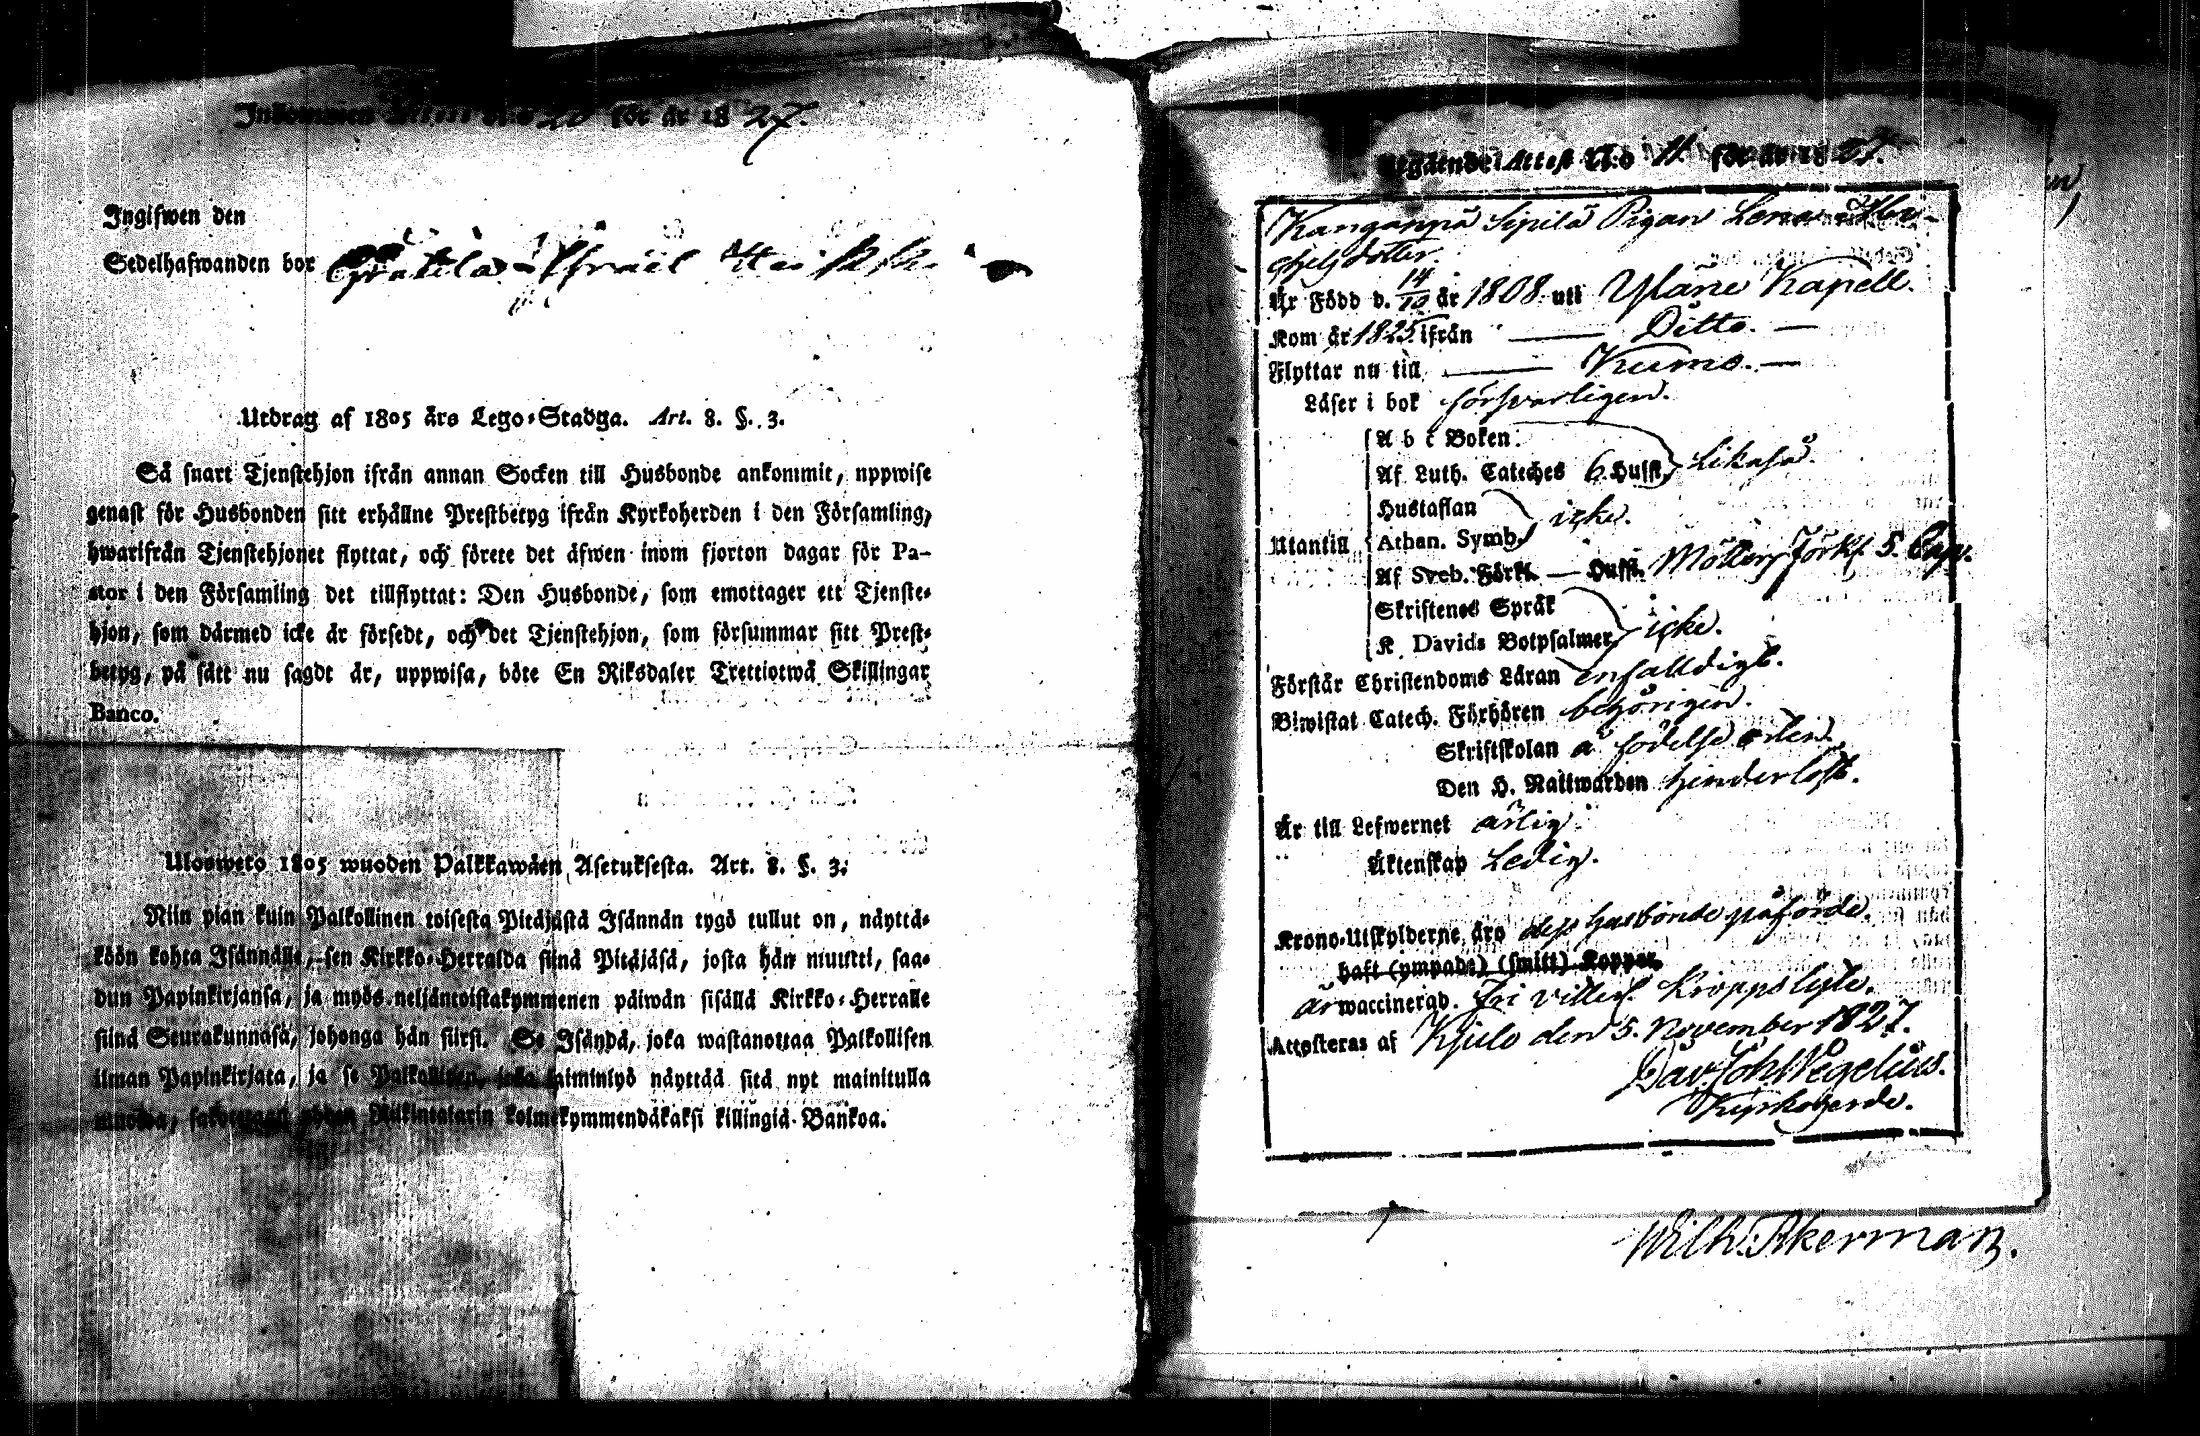 Inkommen N:o 20 för år 1827.
Ingifwen den
Sedelhafwanden bor Israel Heikki
Utdrag af 1805 års Lego-Stadga. Art. 8. §. 3.
Så snart Tjenstehjon ifrån annan Socken till Husbonde ankommit, uppwise
genast för Husbonden sitt erhållne Prestbetyg ifrån Kyrkoherden i den Församling,
hwarifrån Tjenstehjonet flyttat, och förete det äfwen inom fjorton dagar för Pa-
stor i den Församling det tillflyttat: Den Husbonde, som emottager ett Tjenste-
hjon, som därmed icke är försedt, och det Tjenstehjon, som försummar sitt Prest-
betyg, på sätt nu sagdt är, uppwisa, böte En Riksdaler Trettiotwå Skillingar
Banco.
Ulosweto 1805 wuoden Palkkawäen Asetuksesta. Art. 8. §. 3.
Niin pian kuin Palkollinen toisesta Pitäjästä Isännän tygö tullut on, näyttä-
köön kohta Isännälle, sen Kirkko-Herralda siinä Pitäjäsä, josta hän muutti, saa-
dun Papinkirjansa, ja myös neljäntoistakymmenen päiwän sisällä Kirkko-Herralle
siinä Seurakunnasa, johonga hän siirsi. Se Isändä, joka wastanottaa Palkollisen
ilman Papinkirjata, ja se Palkollinen, joka laiminlyö näyttää sitä nyt mainitulla
muotoa, Riikintalarin kolmekymmendäkaksi killingiä Bankoa.
Utgående Attest N:o 11. för år 1827.
Kanganpä Sipilä Pigan Lena
dotter.
Är Född d. 14/10 år 1808 uti Yläne Kapell.
Kom år 1825 ifrån — Ditto. —
Flyttar nu till — Kumo. —
Läser i bok försvarligen.
A b c Boken
Af Luth. Cateches 6. Husst. Likaså.
Hustaflan
Utantill Athan. Symb. icke.
Af Sveb. Förkl. — Husst. Möllers Förkl. 5. Cap.
Skriftenes Språk
K. Davids Botpsalmer icke.
Förstår Christendoms Läran enfalldigt.
Biwistat Catech. Förhören behörigen.
Skriftskolan å födelse orten.
Den H. Nattwarden hinderlöst.
Är till Lefwernet ärlig.
Äktenskap Ledig.
Krono-Utskylderne äro dess husbonde påförde.
haft (ympade) (smitt) Koppor.
är waccinerad. Fri villeg. Kropps lyte.
Attesteras af Kjulo den 5. November 1827.
Dav. Joh. Wegelius.
Kyrkoherde.
Wilh. Åkerman.